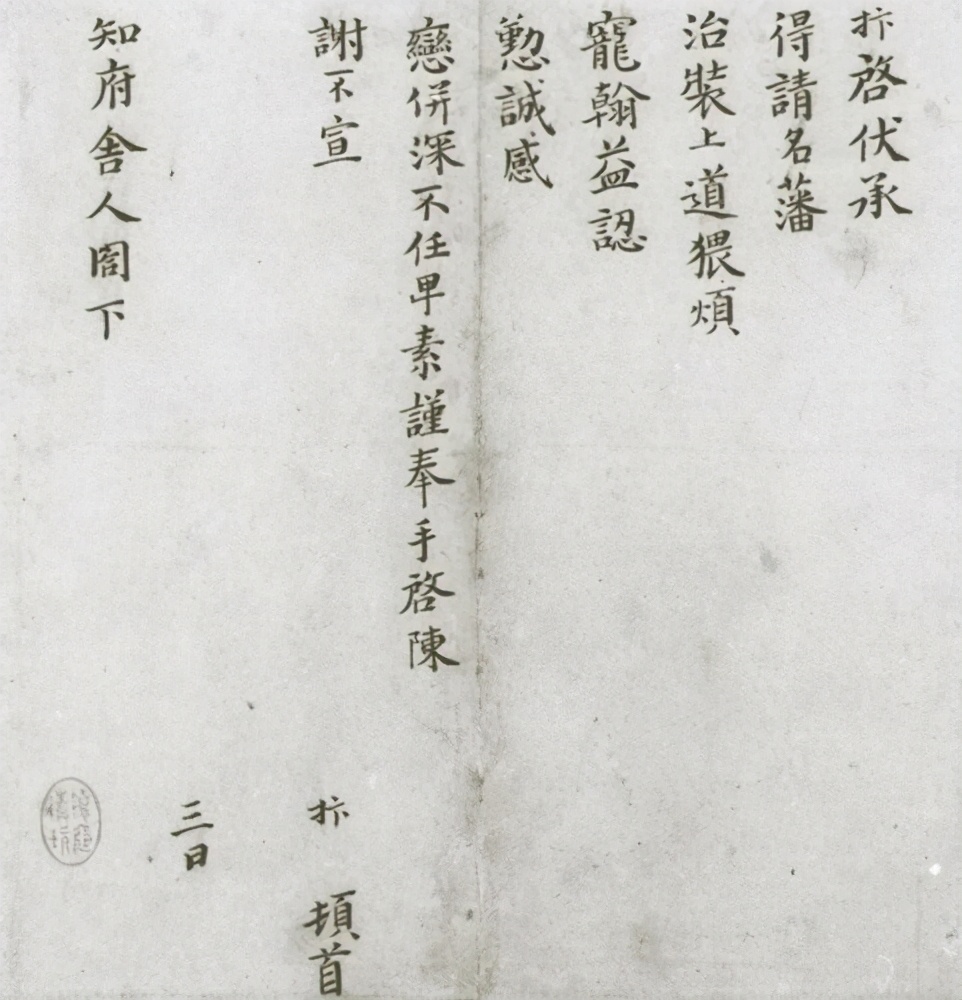 抃啓伏承
得請名藩
治裝上道猥煩
寵翰益認
懃誠感
戀併深不任卑素謹奉手啓陳
謝不宣
抃
頓首
三日
知府舍人閤下